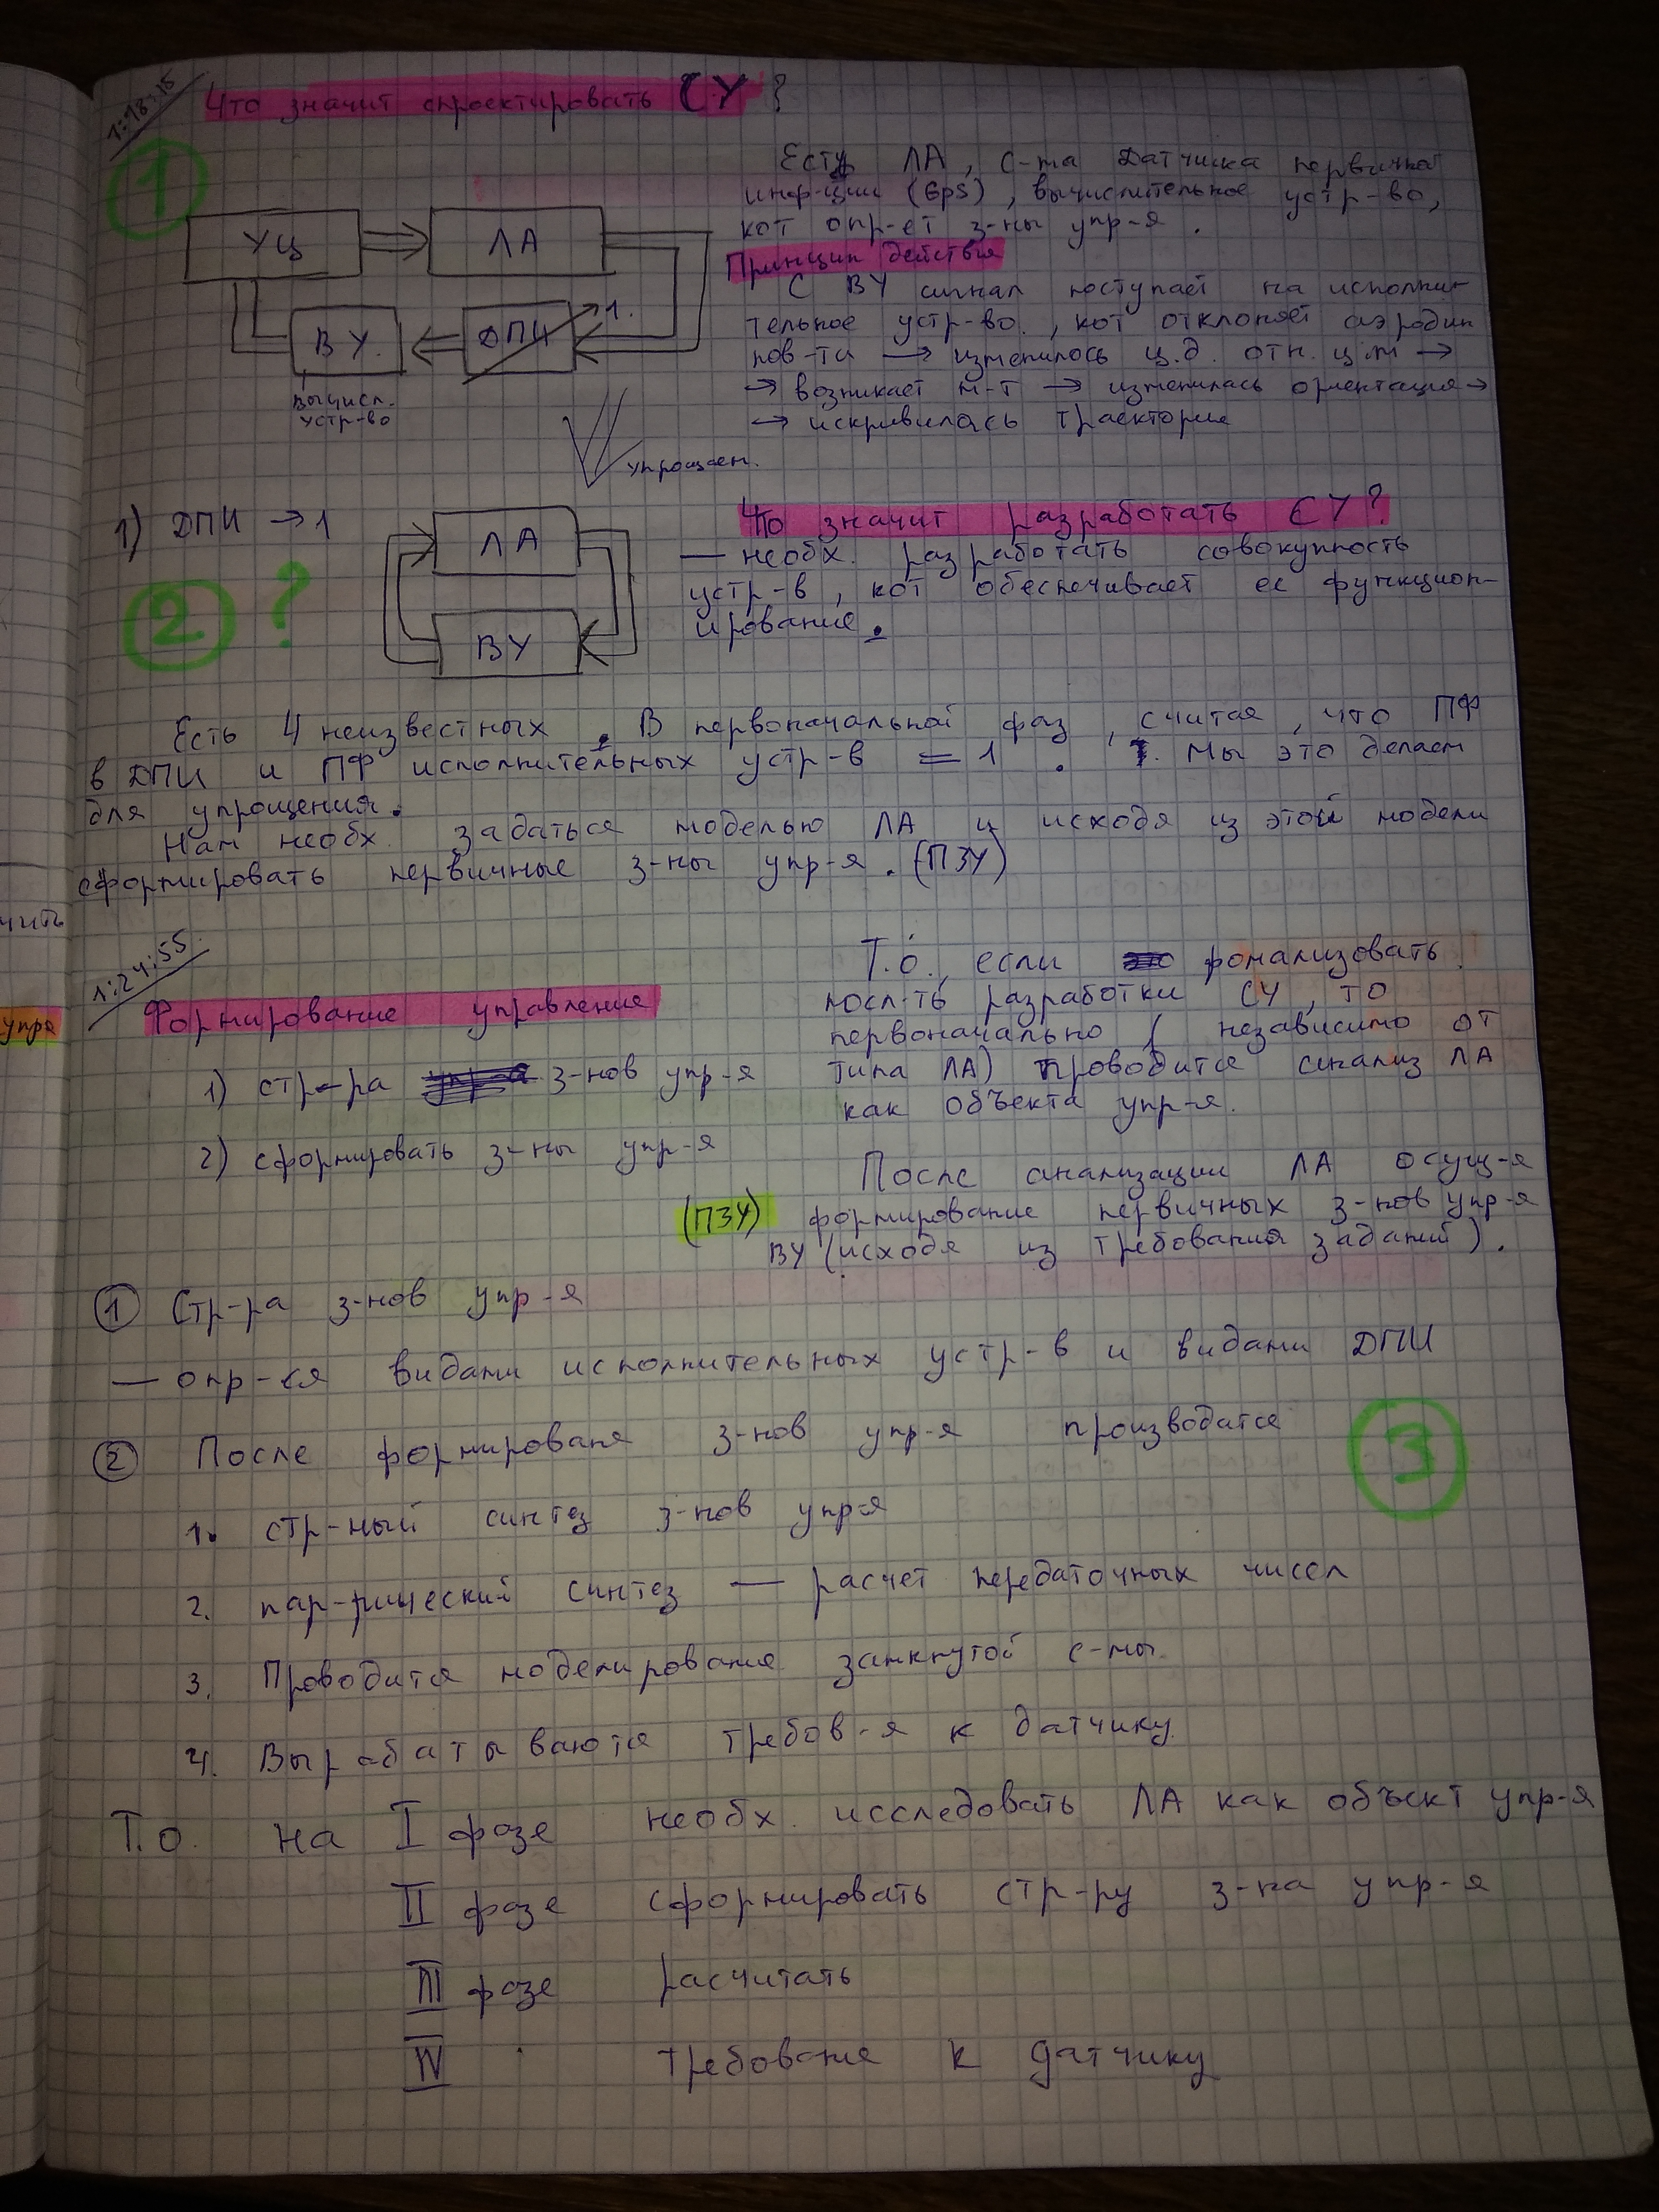 1:18:15
Что значит спроектировать СУ?
1
Есть ЛА, с-ма Датчика первичной
инф-ции (GPS), вычислительное устр-во,
кот опр-ет з-ны упр-я.
УЦ
ЛА
ВУ.
ДПИ
1.
вычисл.
устр-во
Принцип действия
С ВУ сигнал поступает на исполни-
тельное устр-во., кот отклоняет аэродин
пов-ти → изменилось ц.д. отн. ц.м →
→ возникает м-т → изменилась ориентация →
→ искривилась траектория
упрощаем.
1) ДПИ → 1
2 ?
ЛА
ВУ
Что значит разработать СУ?
— необх. разработать совокупность
устр-в, кот обеспечивает ее функцион-
ирование.
Есть 4 неизвестных. В первоначальной фаз, считая, что ПФ
в ДПИ и ПФ исполнительных устр-в = 1. Мы это делаем
для упрощения.
Нам необх. задаться моделью ЛА и исходя из этой модели
сформировать первичные з-ны упр-я. (ПЗУ)
чить
упра
1:24:55.
Формирование управления
1) стр-ра з-нов упр-я
2) сформировать з-ны упр-я
Т.о., если фомализовать
посл-ть разработки СУ, то
первоначально (независимо от
типа ЛА) проводится анализ ЛА
как объекта упр-я.
После анализации ЛА осущ-я
(ПЗУ) формирование первичных з-нов упр-я
ВУ (исходя из требования заданий).
1 Стр-ра з-нов упр-я
— опр-ся видами исполнительных устр-в и видами ДПИ
2 После формированя з-нов упр-я производатся
3
1. стр-ный синтез з-нов упр-я
2. пар-рический синтез — расчет передаточных чисел
3. Проводится моделирование замкнутой с-мы.
4. Вырабатываются требов-я к датчику.
Т.о. на I фазе необх. исследовать ЛА как объект упр-я
II фазе сформировать стр-ру з-на упр-я
III фазе расчитать
IV требование к датчику